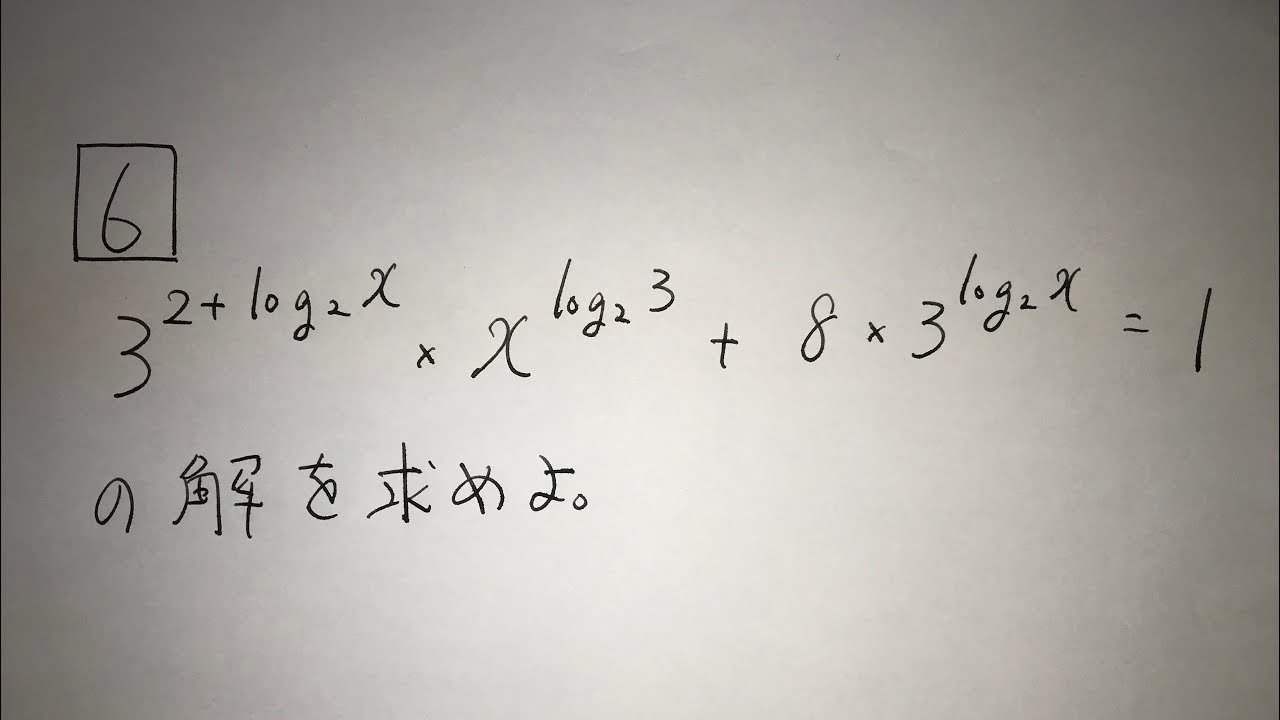 6
3^{2+log_2 x} × x^{log_2 3} + 8 × 3^{log_2 x} = 1
の解を求めよ。